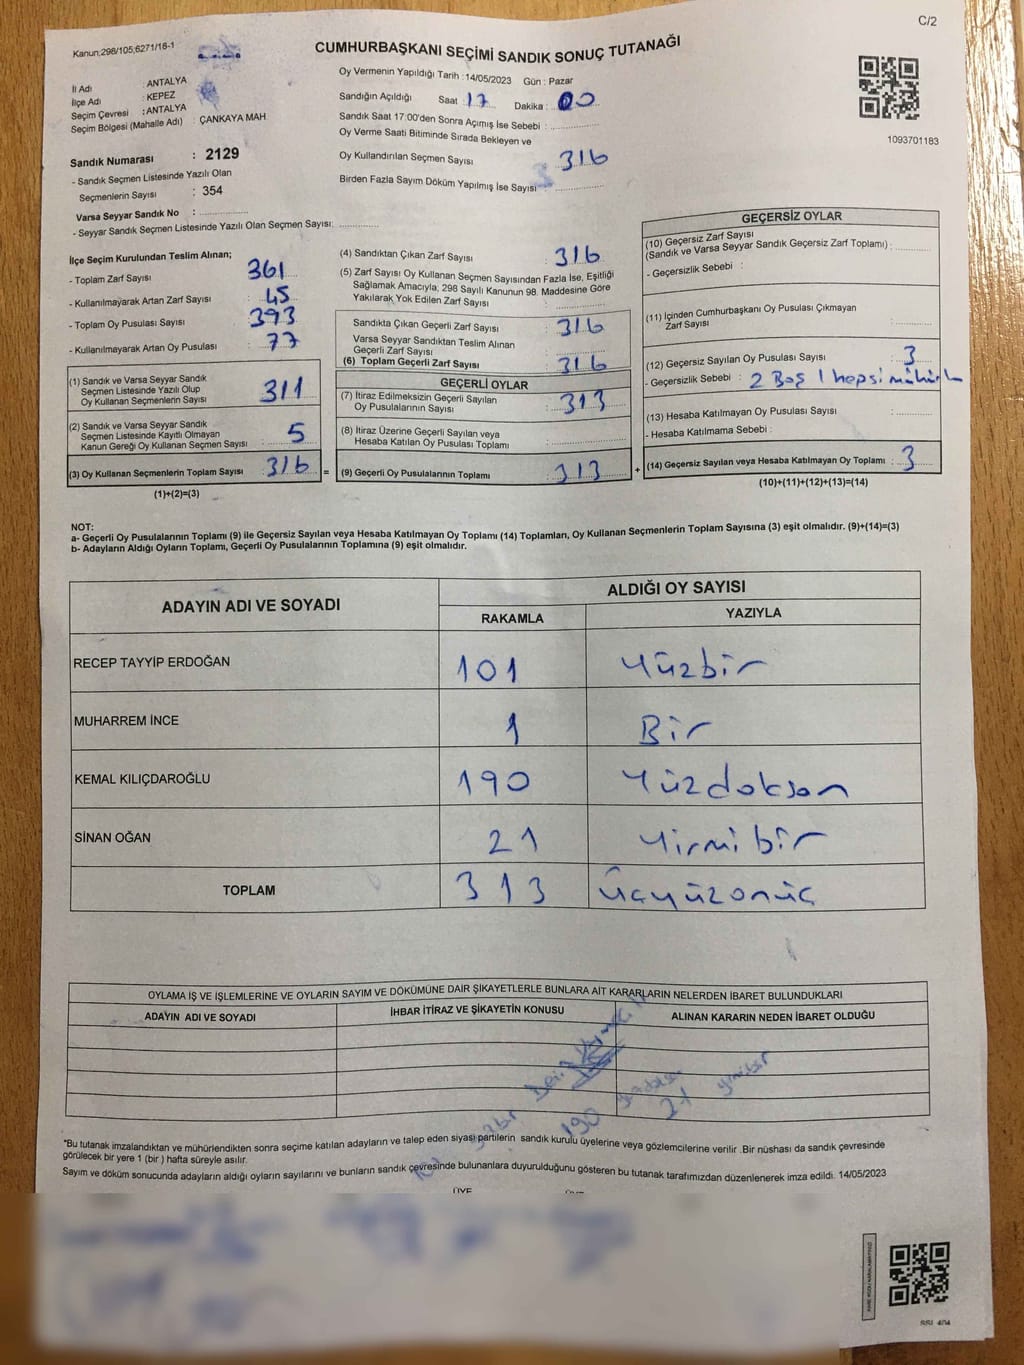 C/2
Kanun;298/105;6271/16-1
CUMHURBAŞKANI SEÇİMİ SANDIK SONUÇ TUTANAĞI
İl Adı : ANTALYA
İlçe Adı : KEPEZ
Seçim Çevresi : ANTALYA
Seçim Bölgesi (Mahalle Adı) : ÇANKAYA MAH
Oy Vermenin Yapıldığı Tarih : 14/05/2023 Gün : Pazar
Sandığın Açıldığı Saat 17 Dakika : 00
Sandık Saat 17:00'den Sonra Açımış İse Sebebi :
Oy Verme Saati Bitiminde Sırada Bekleyen ve
Oy Kullandırılan Seçmen Sayısı 316
Birden Fazla Sayım Döküm Yapılmış İse Sayısı
1093701183
Sandık Numarası : 2129
- Sandık Seçmen Listesinde Yazılı Olan
Seçmenlerin Sayısı : 354
Varsa Seyyar Sandık No :
- Seyyar Sandık Seçmen Listesinde Yazılı Olan Seçmen Sayısı:
İlçe Seçim Kurulundan Teslim Alınan;
- Toplam Zarf Sayısı : 361
- Kullanılmayarak Artan Zarf Sayısı : 45
- Toplam Oy Pusulası Sayısı : 393
- Kullanılmayarak Artan Oy Pusulası : 77
(1) Sandık ve Varsa Seyyar Sandık
Seçmen Listesinde Yazılı Olup
Oy Kullanan Seçmenlerin Sayısı : 311
(2) Sandık ve Varsa Seyyar Sandık
Seçmen Listesinde Kayıtlı Olmayan
Kanun Gereği Oy Kullanan Seçmen Sayısı : 5
(3) Oy Kullanan Seçmenlerin Toplam Sayısı : 316 =
(1)+(2)=(3)
(4) Sandıktan Çıkan Zarf Sayısı : 316
(5) Zarf Sayısı Oy Kullanan Seçmen Sayısından Fazla İse, Eşitliği
Sağlamak Amacıyla; 298 Sayılı Kanunun 98. Maddesine Göre
Yakılarak Yok Edilen Zarf Sayısı :
Sandıkta Çıkan Geçerli Zarf Sayısı : 316
Varsa Seyyar Sandıktan Teslim Alınan
Geçerli Zarf Sayısı :
(6) Toplam Geçerli Zarf Sayısı : 316
GEÇERLİ OYLAR
(7) İtiraz Edilmeksizin Geçerli Sayılan
Oy Pusulalarının Sayısı : 313
(8) İtiraz Üzerine Geçerli Sayılan veya
Hesaba Katılan Oy Pusulası Toplamı :
(9) Geçerli Oy Pusulalarının Toplamı : 313 +
GEÇERSİZ OYLAR
(10) Geçersiz Zarf Sayısı
(Sandık ve Varsa Seyyar Sandık Geçersiz Zarf Toplamı) :
- Geçersizlik Sebebi :
(11) İçinden Cumhurbaşkanı Oy Pusulası Çıkmayan
Zarf Sayısı :
(12) Geçersiz Sayılan Oy Pusulası Sayısı : 3
- Geçersizlik Sebebi : 2 Boş 1 hepsi mühürlü
(13) Hesaba Katılmayan Oy Pusulası Sayısı :
- Hesaba Katılmama Sebebi :
(14) Geçersiz Sayılan veya Hesaba Katılmayan Oy Toplamı : 3
(10)+(11)+(12)+(13)=(14)
NOT:
a- Geçerli Oy Pusulalarının Toplamı (9) ile Geçersiz Sayılan veya Hesaba Katılmayan Oy Toplamı (14) Toplamları, Oy Kullanan Seçmenlerin Toplam Sayısına (3) eşit olmalıdır. (9)+(14)=(3)
b- Adayların Aldığı Oyların Toplamı, Geçerli Oy Pusulalarının Toplamına (9) eşit olmalıdır.
ADAYIN ADI VE SOYADI ALDIĞI OY SAYISI
RAKAMLA YAZIYLA
RECEP TAYYİP ERDOĞAN 101 Yüzbir
MUHARREM İNCE 1 Bir
KEMAL KILIÇDAROĞLU 190 Yüzdoksan
SİNAN OĞAN 21 Yirmibir
TOPLAM 313 Üçyüzonüç
OYLAMA İŞ VE İŞLEMLERİNE VE OYLARIN SAYIM VE DÖKÜMÜNE DAİR ŞİKAYETLERLE BUNLARA AİT KARARLARIN NELERDEN İBARET BULUNDUKLARI
ADAYIN ADI VE SOYADI İHBAR İTİRAZ VE ŞİKAYETİN KONUSU ALINAN KARARIN NEDEN İBARET OLDUĞU
190 yüzdoksan
21 yirmibir
*Bu tutanak imzalandıktan ve mühürlendikten sonra seçime katılan adayların ve talep eden siyasi partilerin sandık kurulu üyelerine veya gözlemcilerine verilir .Bir nüshası da sandık çevresinde
görülecek bir yere 1 (bir ) hafta süreyle asılır.
Sayım ve döküm sonucunda adayların aldığı oyların sayılarını ve bunların sandık çevresinde bulunanlara duyurulduğunu gösteren bu tutanak tarafımızdan düzenlenerek imza edildi. 14/05/2023
ÜYE